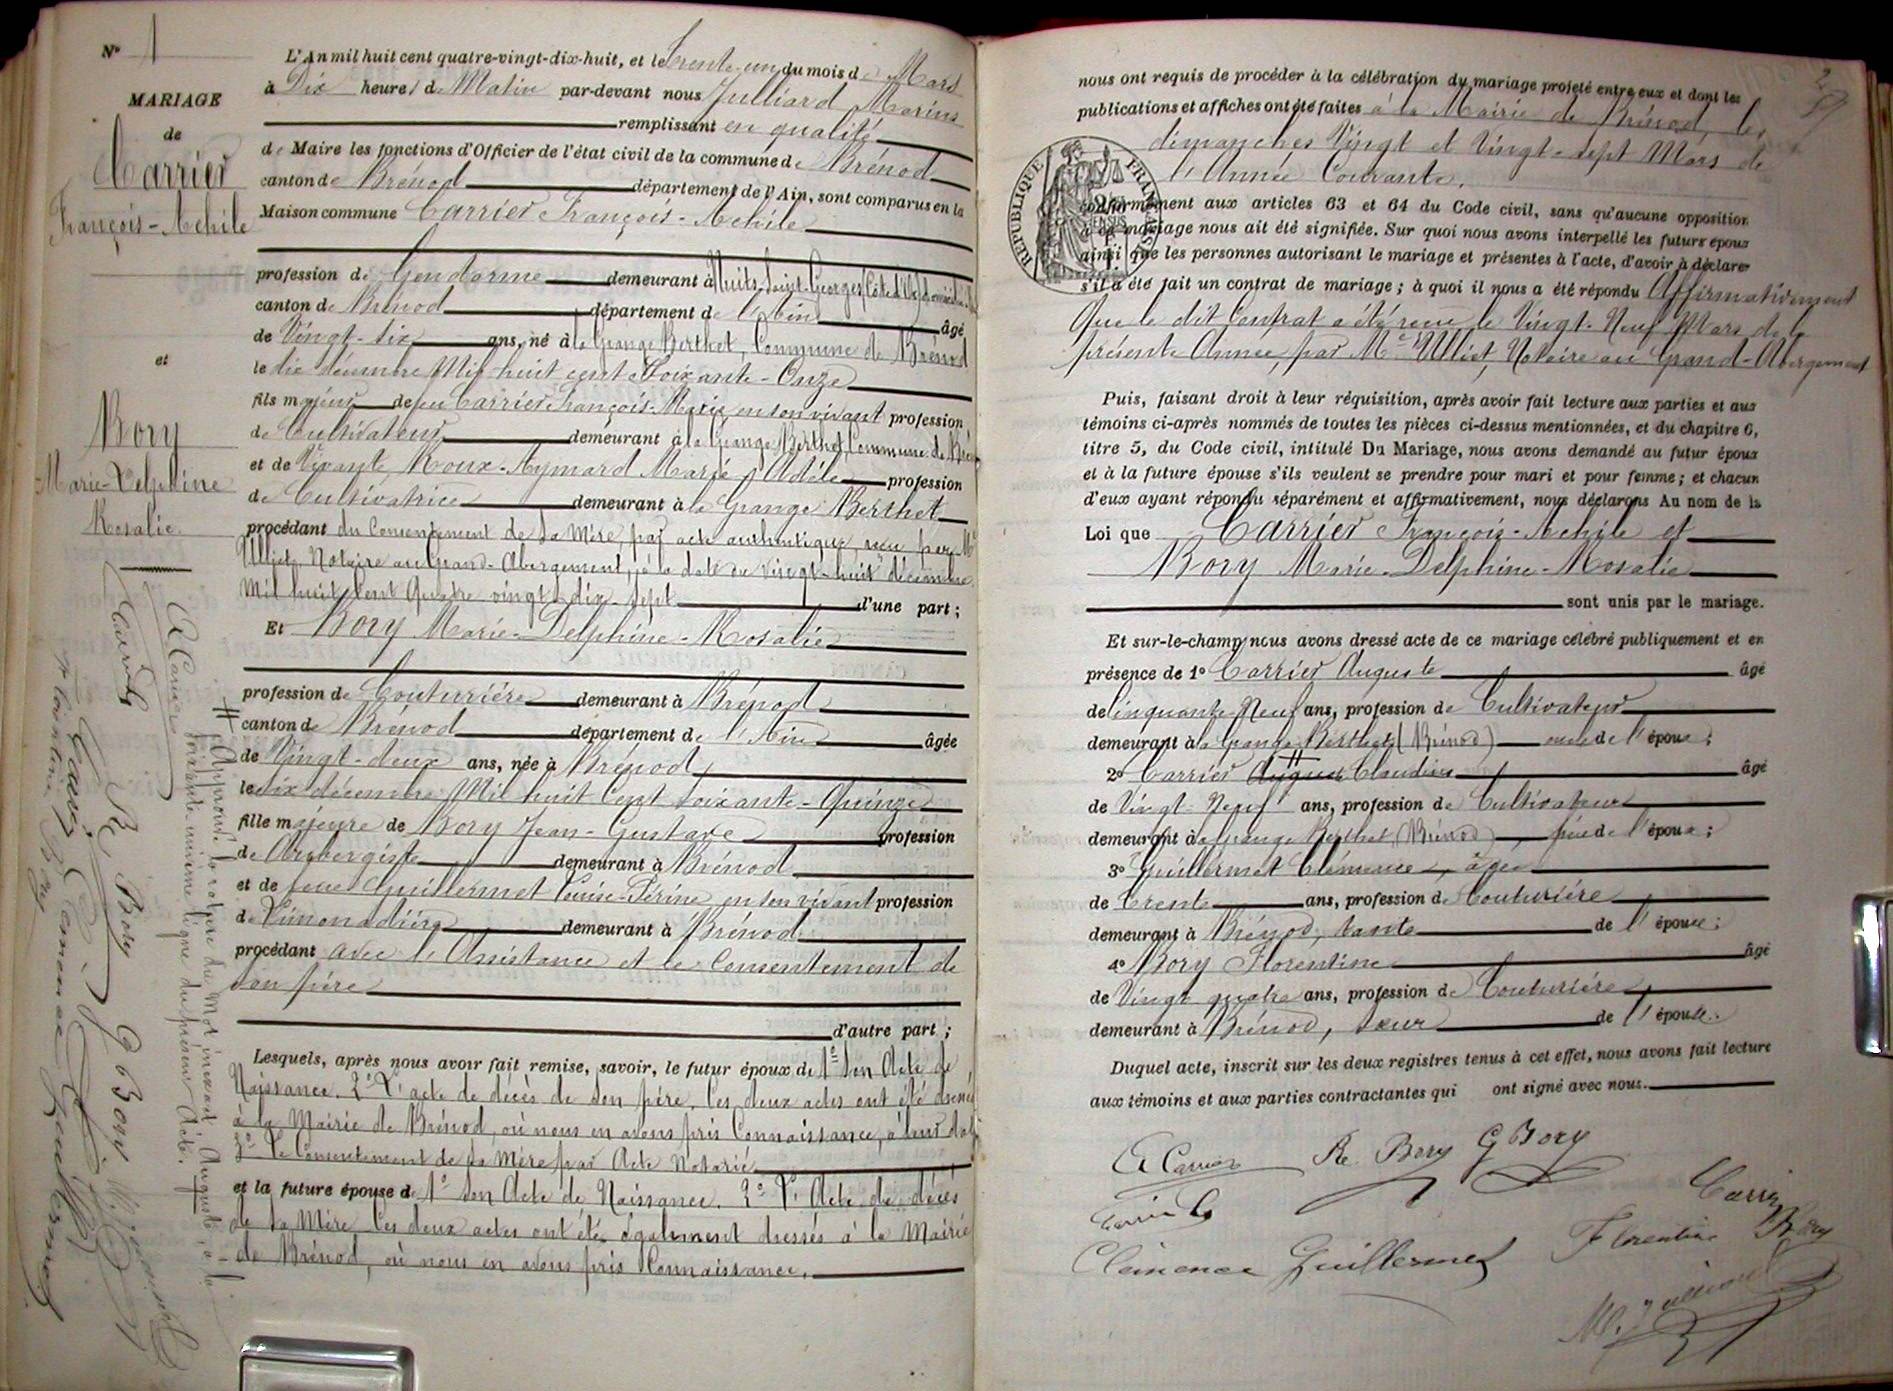 N° 1
MARIAGE
de
Carrier
François-Achile
et
Bory
Marie-Delphine
Rosalie
L'An mil huit cent quatre-vingt-dix-huit, et le Trente-un du mois de Mars
à Dix heures du Matin par-devant nous Julliard Marius
remplissant en qualité
de Maire les fonctions d'Officier de l'état civil de la commune de Brénod
canton de Brénod département de l'Ain, sont comparus en la
Maison commune Carrier François-Achile
profession de Gendarme demeurant à Nuits-Saint-Georges (Côte d'Or)
canton de Brénod département de l'Ain âgé
de Vingt-six ans, né à la Grange Berthet, Commune de Brénod
le dix décembre Mil huit cent Soixante-Onze
fils majeur de feu Carrier François-Marie en son vivant profession
de Cultivateur demeurant à la Grange Berthet, Commune de Brénod
et de Vivante Roux-Aymard Marie Adéle profession
de Cultivatrice demeurant à la Grange Berthet
procédant du Consentement de sa Mère, par acte authentique, reçu par Me
Ulliet, Notaire au Grand-Abergement, à la date du vingt-huit décembre
Mil huit Cent Quatre vingt dix-sept d'une part ;
Et Bory Marie-Delphine-Rosalie
profession de Couturriére demeurant à Brénod
canton de Brénod département de l'Ain âgée
de Vingt-deux ans, née à Brénod
le dix décembre Mil huit Cent soixante-Quinze
fille majeure de Bory Jean-Gustave profession
de Aubergiste demeurant à Brénod
et de feue Guillermet Louise-Périne en son vivant profession
de Limonadière demeurant à Brénod
procédant avec l'Assistance et le Consentement de
son père
d'autre part ;
Lesquels, après nous avoir fait remise, savoir, le futur époux de 1° Son Acte de
Naissance. 2° L'acte de décès de Son père. Ces deux actes ont été dressés
à la Mairie de Brénod, où nous en avons pris Connaissance, à leur date
3° Le Consentement de sa Mère par Acte Notarié
et la future épouse de 1° Son Acte de Naissance. 2° L'Acte de décès
de sa Mère Ces deux actes ont été également dressés à la Mairie
de Brénod, où nous en avons pris Connaissance.
# Approuvé la rature du Mot inexact "Auguste" à la
soixante uniéme ligne du présent Acte.
A Carrier
Carrier Cl
R. Bory
G Bory
Carrier
Clemence Guillermet
Florentine Bory
M. Julliard
nous ont requis de procéder à la célébration du mariage projeté entre eux et dont les
publications et affiches ont été faites à la Mairie de Brénod, les
dimanches Vingt et Vingt-sept Mars de
l'Année Courante.
RÉPUBLIQUE FRANÇAISE
conformément aux articles 63 et 64 du Code civil, sans qu'aucune opposition
à ce mariage nous ait été signifiée. Sur quoi nous avons interpellé les futurs époux
ainsi que les personnes autorisant le mariage et présentes à l'acte, d'avoir à déclarer
s'il a été fait un contrat de mariage ; à quoi il nous a été répondu Affirmativement
Que le dit Contrat a été reçu le Vingt-Neuf Mars de la
présente Année, par Me Ulliet, Notaire au Grand-Abergement
Puis, faisant droit à leur réquisition, après avoir fait lecture aux parties et aux
témoins ci-après nommés de toutes les pièces ci-dessus mentionnées, et du chapitre 6,
titre 5, du Code civil, intitulé Du Mariage, nous avons demandé au futur époux
et à la future épouse s'ils veulent se prendre pour mari et pour femme ; et chacun
d'eux ayant répondu séparément et affirmativement, nous déclarons Au nom de la
Loi que Carrier François-Achile et
Bory Marie-Delphine-Rosalie
sont unis par le mariage.
Et sur-le-champ nous avons dressé acte de ce mariage célébré publiquement et en
présence de 1° Carrier Auguste âgé
de Cinquante-Neuf ans, profession de Cultivateur
demeurant à la Grange Berthet (Brénod) oncle de l'époux ;
2° Carrier Auguste Claudius âgé
de Vingt-Neuf ans, profession de Cultivateur
demeurant à la Grange Berthet (Brénod), frère de l'époux ;
3° Guillermet Clémence, âgée
de Trente ans, profession de Couturiére
demeurant à Brénod, tante de l'épouse ;
4° Bory Florentine âgé
de Vingt quatre ans, profession de Couturiére
demeurant à Brénod, sœur de l'épouse.
Duquel acte, inscrit sur les deux registres tenus à cet effet, nous avons fait lecture
aux témoins et aux parties contractantes qui ont signé avec nous.
A Carrier R. Bory G Bory
Carrier Cl Carrier
Clemence Guillermet Florentine Bory
M. Julliard